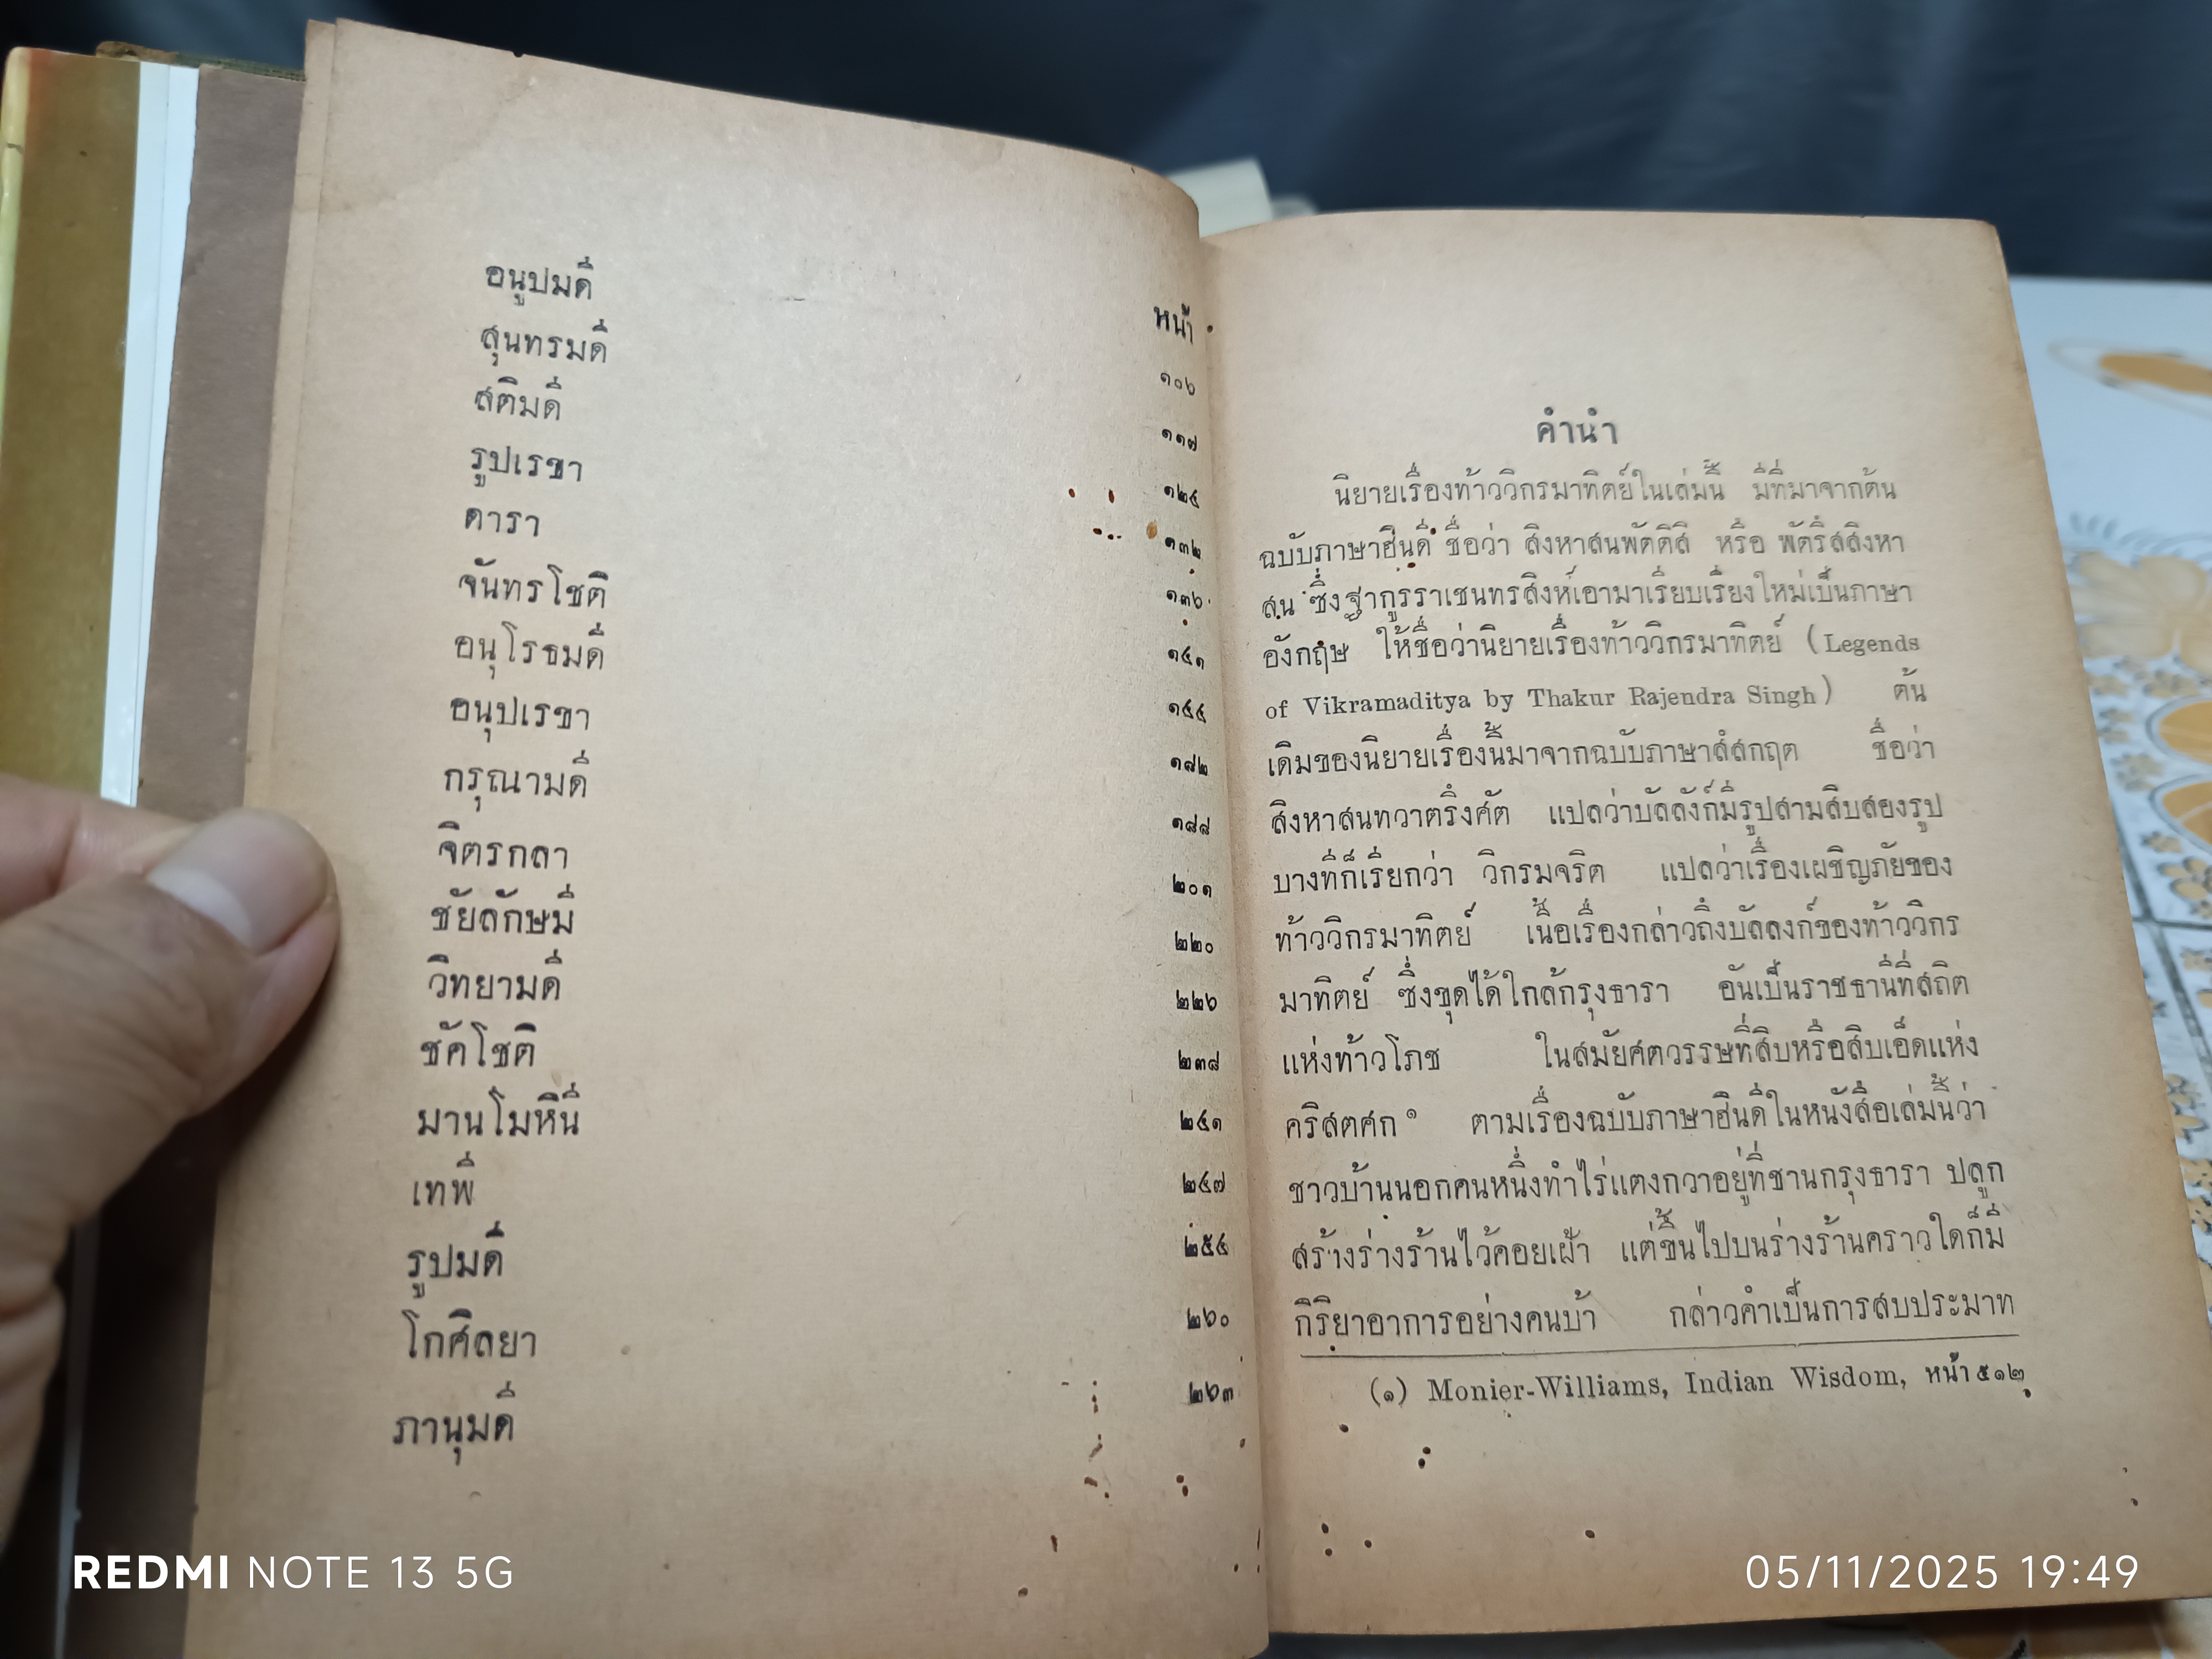 อนูปมดี
สุนทรมดี
สติมดี
รูปเรขา
ดารา
จันทรโชติ
อนุโรธมดี
อนุปเรขา
กรุณามดี
จิตรกลา
ชัยลักษมี
วิทยามดี
ชัคโชติ
มานโมหินี
เทพี
รูปมดี
โกศิลยา
ภานุมดี
หน้า
๑๐๖
๑๑๗
๑๒๔
๑๓๒
๑๓๖
๑๔๑
๑๔๔
๑๘๒
๑๘๘
๒๐๑
๒๒๐
๒๒๖
๒๓๘
๒๔๑
๒๔๗
๒๕๔
๒๖๐
๒๖๓
คำนำ
นิยายเรื่องท้าววิกรมาทิตย์ในเล่มนี้ มีที่มาจากต้น
ฉบับภาษาฮินดี ชื่อว่า สิงหาสนพัตติสี หรือ พัตริสสิงหา
สน ซึ่งฐากูรราเชนทรสิงห์เอามาเรียบเรียงใหม่เป็นภาษา
อังกฤษ ให้ชื่อว่านิยายเรื่องท้าววิกรมาทิตย์ (Legends
of Vikramaditya by Thakur Rajendra Singh) ต้น
เดิมของนิยายเรื่องนี้มาจากฉบับภาษาสํสกฤต ชื่อว่า
สิงหาสนทวาตริงศัต แปลว่าบัลลังก์มีรูปสามสิบสองรูป
บางทีก็เรียกว่า วิกรมจริต แปลว่าเรื่องเผชิญภัยของ
ท้าววิกรมาทิตย์ เนื้อเรื่องกล่าวถึงบัลลงก์ของท้าววิกร
มาทิตย์ ซึ่งขุดได้ใกล้กรุงธารา อันเป็นราชธานีที่สถิต
แห่งท้าวโภช ในสมัยศตวรรษที่สิบหรือสิบเอ็ดแห่ง
คริสตศก ๑ ตามเรื่องฉบับภาษาฮินดีในหนังสือเล่มนี้ว่า
ชาวบ้านนอกคนหนึ่งทำไร่แตงกวาอยู่ที่ชานกรุงธารา ปลูก
สร้างร่างร้านไว้คอยเฝ้า แต่ขึ้นไปบนร่างร้านคราวใดก็มี
กิริยาอาการอย่างคนบ้า กล่าวคำเป็นการสบประมาท
(๑) Monier-Williams, Indian Wisdom, หน้า ๕๑๒
REDMI NOTE 13 5G
05/11/2025 19:49